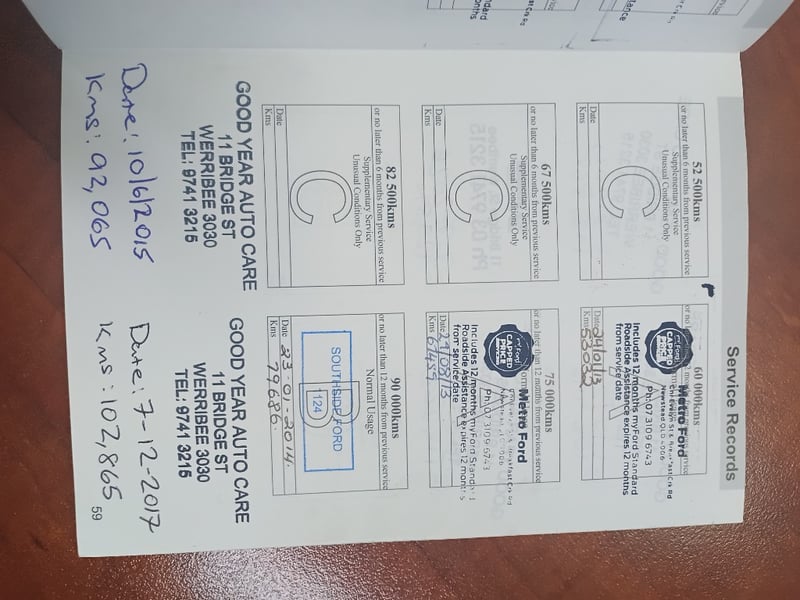 Service Records
52 500kms
or no later than 6 months from previous service
Supplementary Service
Unusual Conditions Only
C
Date
Kms
60 000kms
Metro Ford
my Ford
CAPPED
PRICE
Newstead QLD 4006
Ph: 07 3109 6743
Includes 12 months myFord Standard
Roadside Assistance expires 12 months
from service date
Date
Kms
67 500kms
or no later than 6 months from previous service
Supplementary Service
Unusual Conditions Only
C
Date
Kms
75 000kms
or no later than 12 months from previous service
Metro Ford
my Ford
CAPPED
PRICE
Ph: 07 3109 6743
Includes 12 months myFord Standard
Roadside Assistance expires 12 months
from service date
Date
Kms
82 500kms
or no later than 6 months from previous service
Supplementary Service
Unusual Conditions Only
C
Date
Kms
90 000kms
or no later than 12 months from previous service
Normal Usage
D
SOUTHSIDE FORD
1124
Date 23-01-2014.
Kms 79686.
GOOD YEAR AUTO CARE
11 BRIDGE ST
WERRIBEE 3030
TEL: 9741 3215
Date: 10/6/2015
Kms: 92,065
GOOD YEAR AUTO CARE
11 BRIDGE ST
WERRIBEE 3030
TEL: 9741 3215
Date: 7-12-2017
Kms: 102,865
59